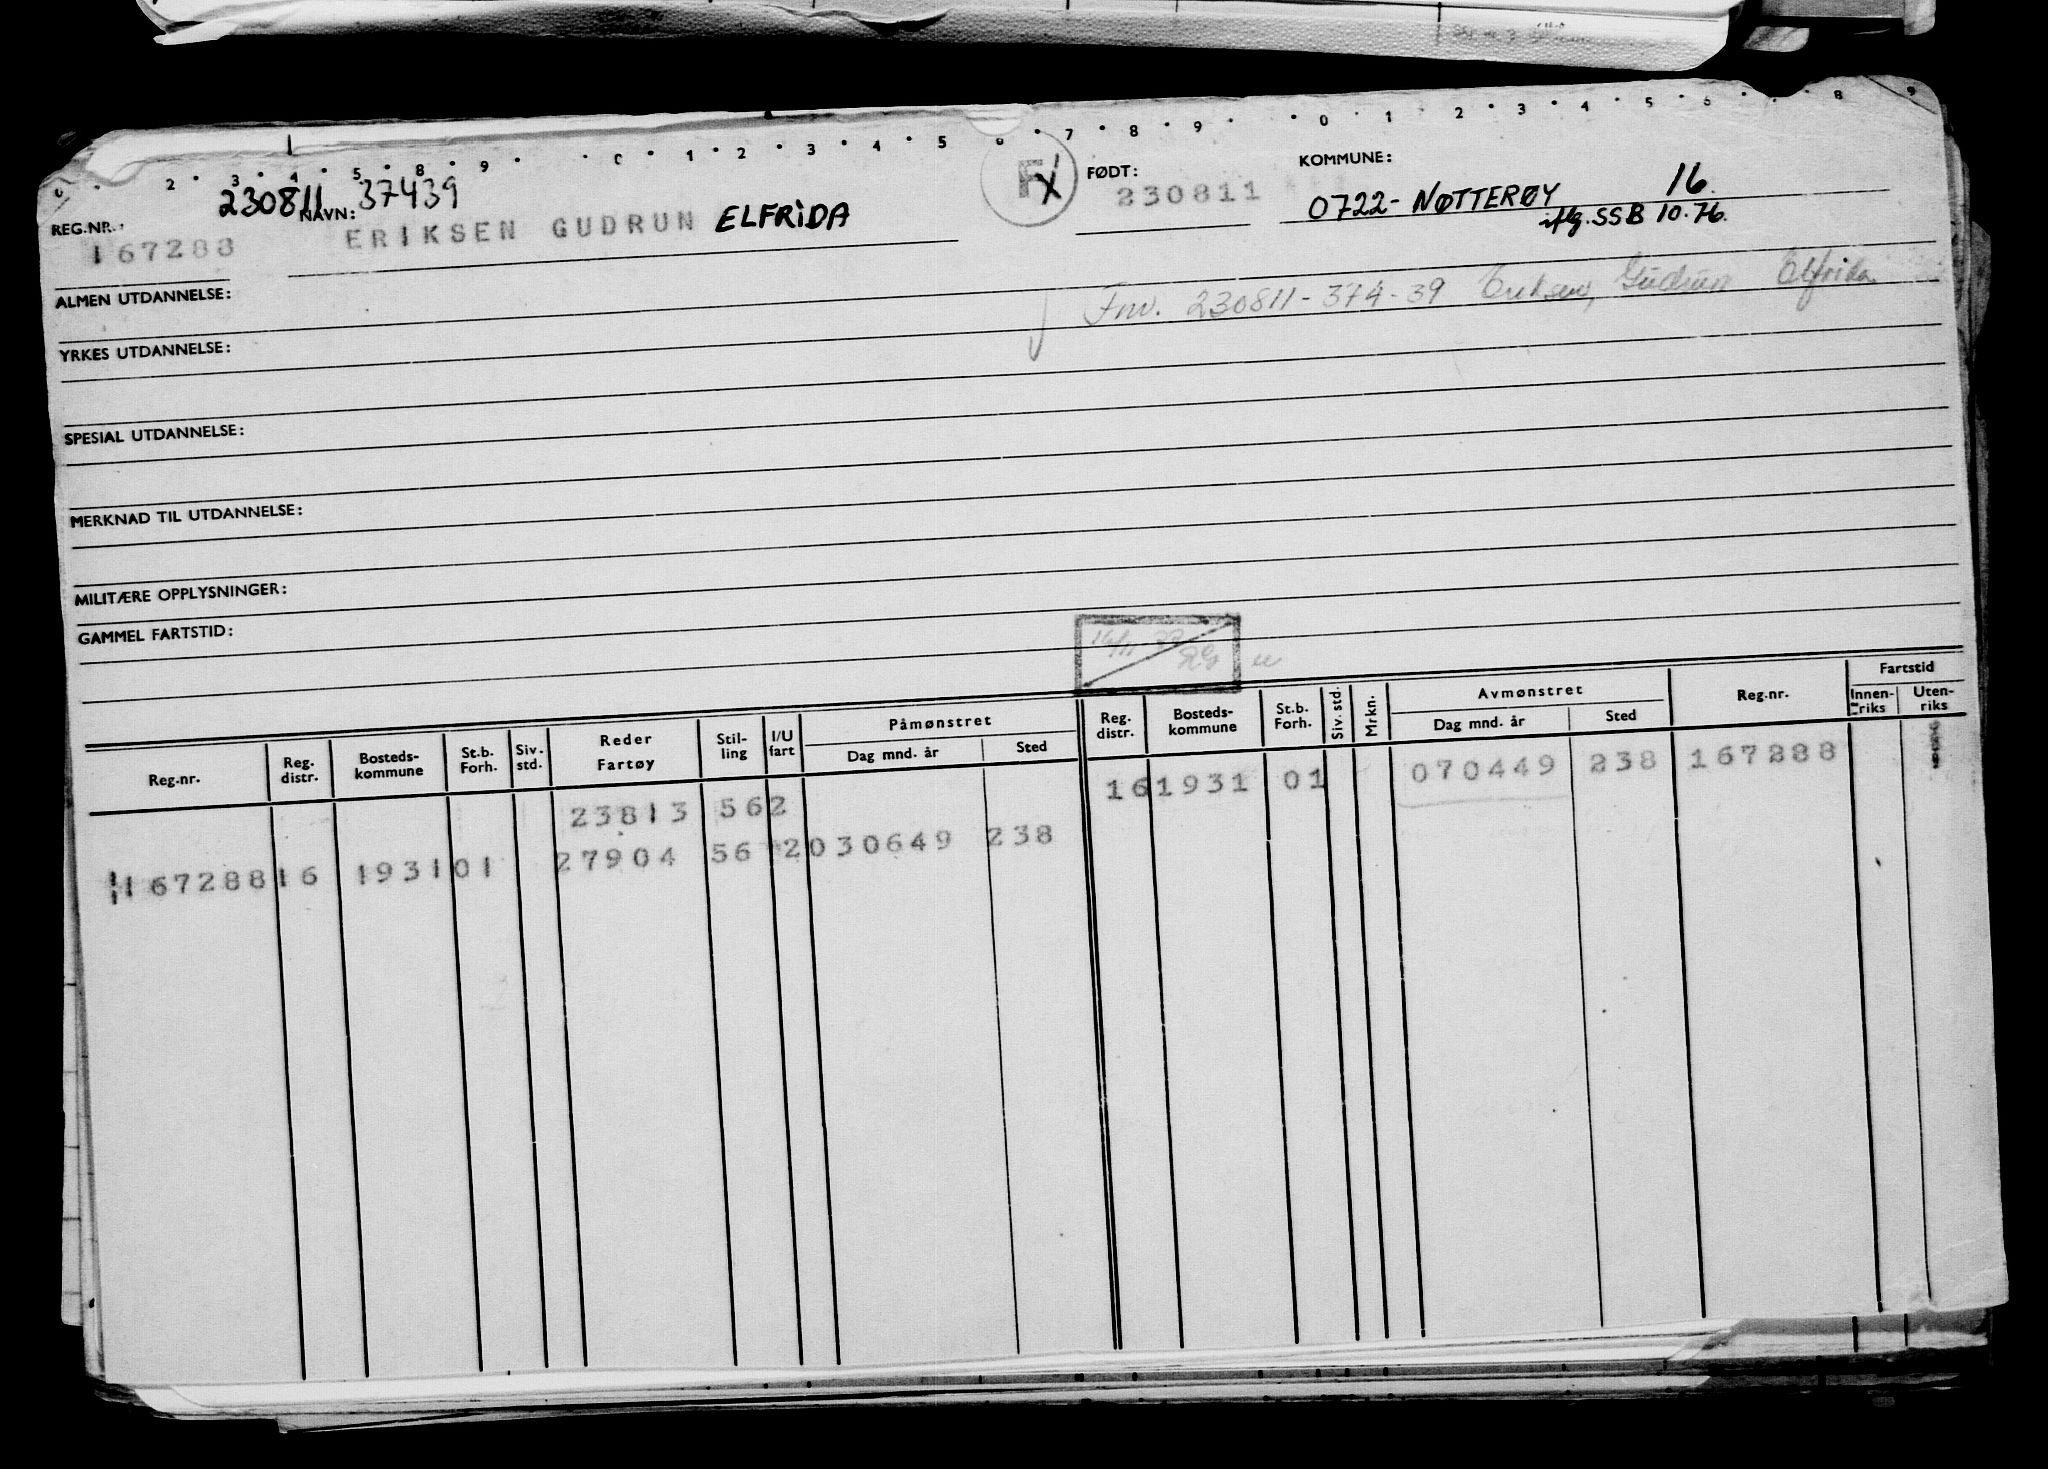 2 3 4 5 8 9 0 1 2 3 4 5 6 7 8 9 0 1 2 3 4 5 6 7 8 9
REG.NR.: 230811 NAVN: 37439 FX FØDT: KOMMUNE:
167288 ERIKSEN GUDRUN ELFRIDA 230811 0722- NØTTERØY 16.
iflg. SSB 10.76.
ALMEN UTDANNELSE:
Fnr. 230811-374-39 Eriksen, Gudrun Elfrida
YRKES UTDANNELSE:
SPESIAL UTDANNELSE:
MERKNAD TIL UTDANNELSE:
MILITÆRE OPPLYSNINGER:
GAMMEL FARTSTID:
Reg.nr. Reg. distr. Bosteds-kommune St.b. Forh. Siv. std. Reder Fartøy Stil-ling I/U fart Påmønstret Dag mnd. år Sted Reg. distr. Bosteds-kommune St.b. Forh. Siv. std. Mrkn. Avmønstret Dag mnd. år Sted Reg.nr. Fartstid Innen-riks Uten-riks
23813 56 2 16 1931 01 070449 238 167288
167288 16 1931 01 27904 56 2 030649 238